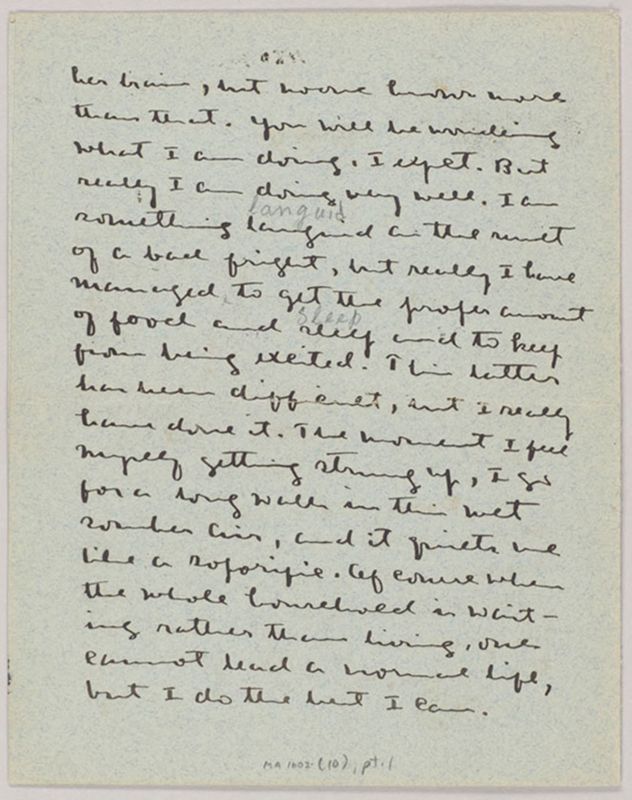 her brain, but no one knows more
than that. You will be wondering
what I am doing, I expect. But
really I am doing very well. I am
languid
something languid as the result
of a bad fright, but really I have
managed, to get the proper amount
sleep
of food and sleep and to keep
from being excited. This latter
has been difficult, but I really
have done it. The moment I feel
myself getting strung up, I go
for a long walk in this wet
somber air, and it quiets me
like a soporific. Of course when
the whole household is wait-
ing rather than living, one
cannot lead a normal life,
but I do the best I can.
MA 1602 (10), pt. 1